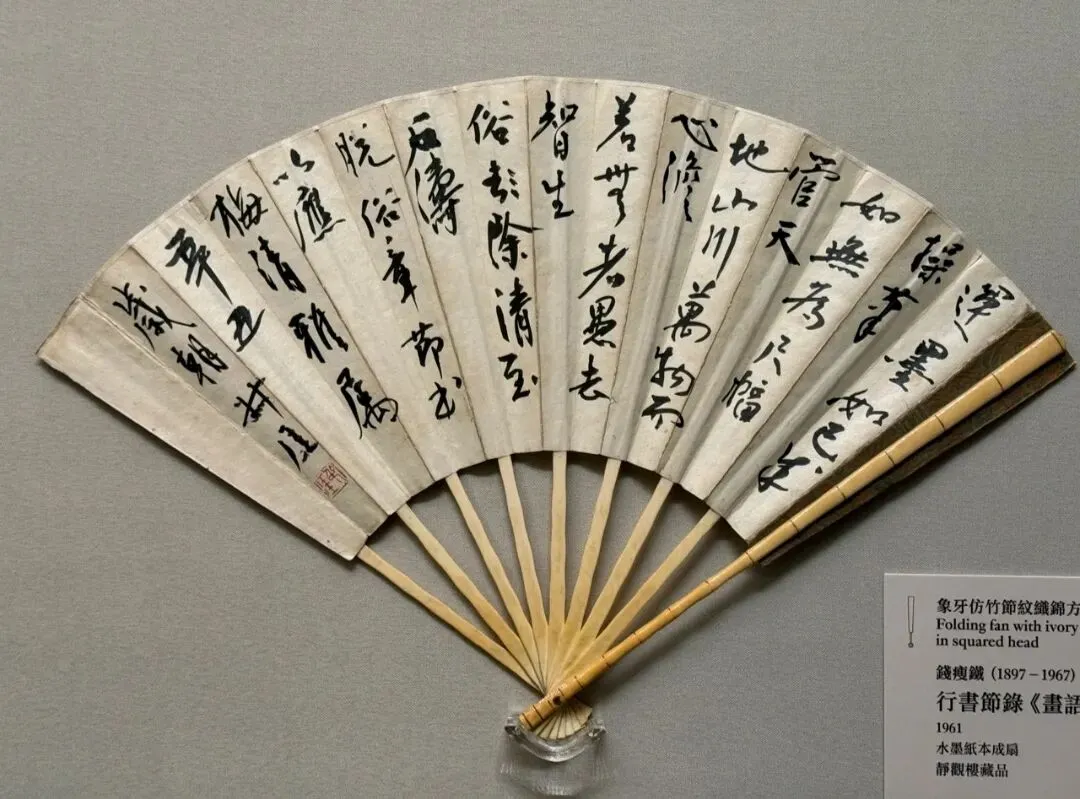 運墨如已成
操筆
如無為尺幅
管天
地山川萬物而
心澹
若無者愚去
智生
俗除清至
石濤
脫俗章節書
以應
梅清雅屬
辛丑
歲朝叔厓
象牙仿竹節紋織錦方
Folding fan with ivory
in squared head
錢瘦鐵 (1897–1967)
行書節錄《畫語
1961
水墨紙本成扇
靜觀樓藏品